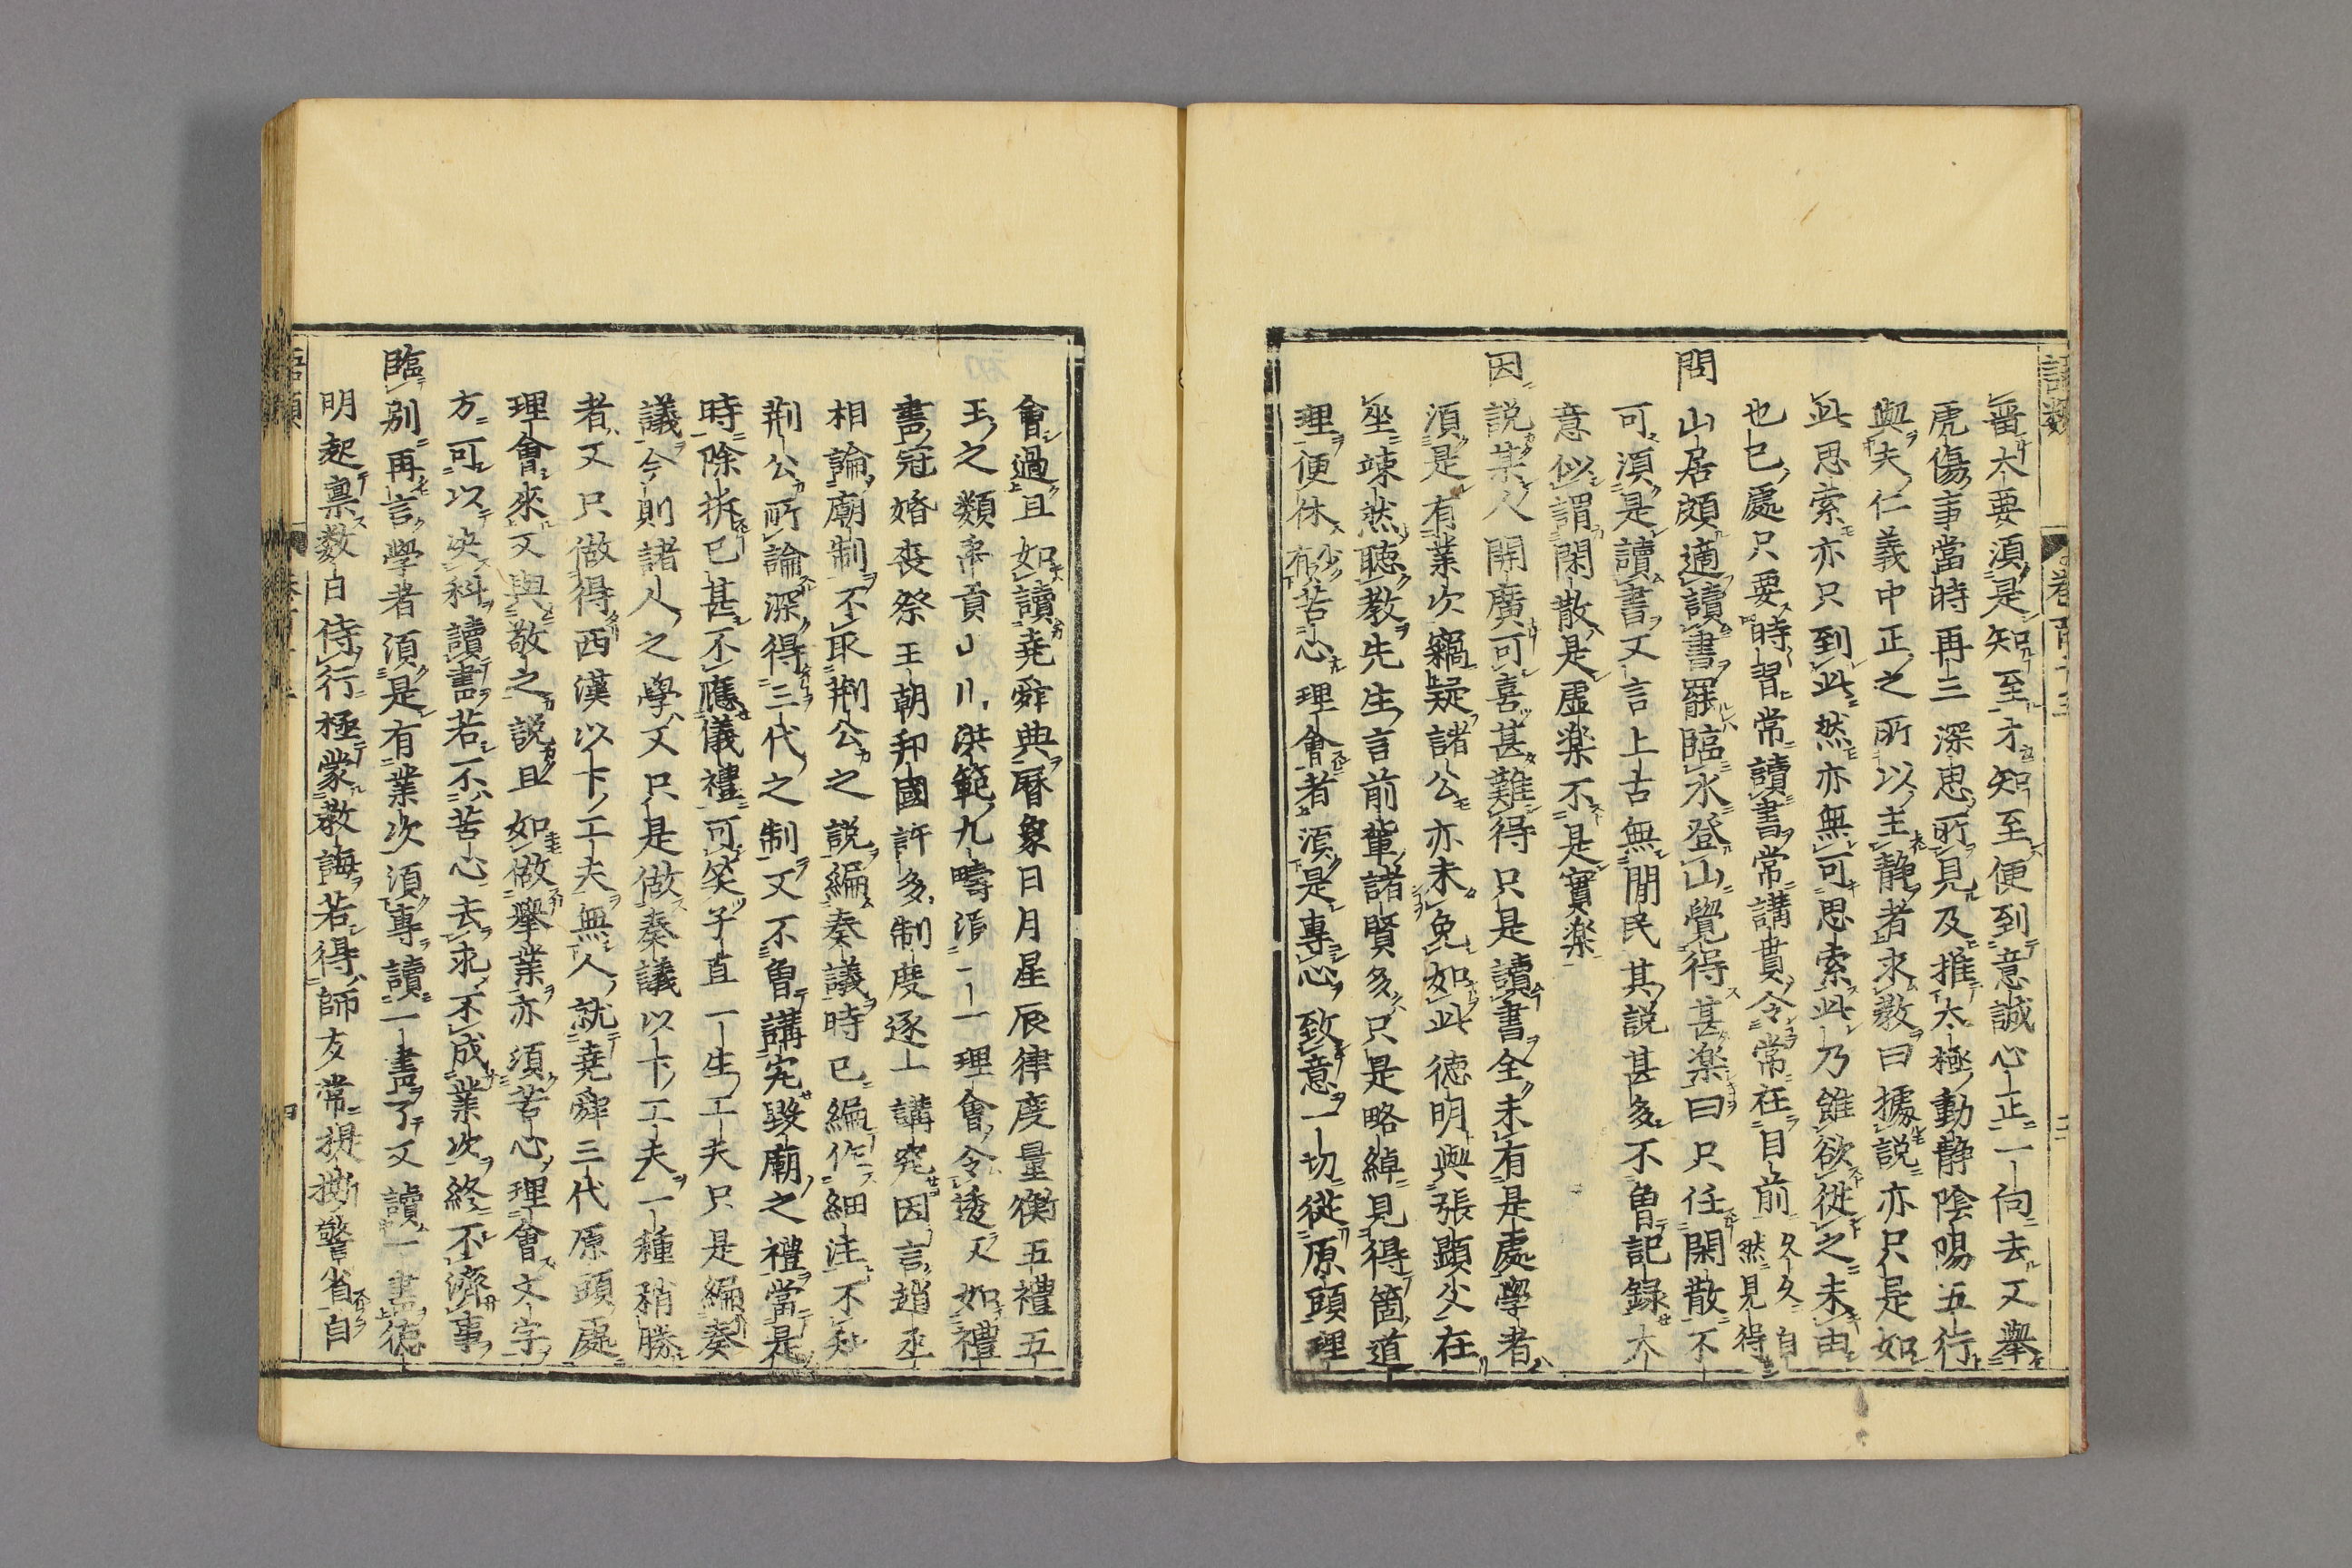 語類
卷百十三
番大要須是知至才知至便到意誠心正一向去又舉
虎傷事當時再三深思所見及推太極動静陰陽五行
與夫仁義中正之所以主静者求教曰據説亦只是如
此思索亦只到此然亦無可思索此乃雖欲從之末由
也已處只要時習常讀書常講貫令常在目前久久自
然見得
問山居頗適讀書罷臨水登山覺得甚楽曰只任閑散不
可須是讀書又言上古無閒民其説甚多不曾記録大
意似謂閑散是虚楽不是實楽
因説某人開廣可喜甚難得只是讀書全未有是處學者
須是有業次竊疑諸公亦未免如此徳明與張顕父在
坐竦然聴教先生言前輩諸賢多只是略綽見得箇道
理便休少有苦心理會者須是專心致意一切從原頭理
會過且如讀堯舜典暦象日月星辰律度量衡五禮五
玉之類禹貢山川洪範九疇須一一理會令透又如禮
書冠婚喪祭王朝邦國許多制度逐一講究因言趙丞
相論廟制不取荆公之説編奏議時已編作細注不知
荆公所論深得三代之制又不曾講究毀廟之禮當是
時除拆已甚不應儀禮可笑子直一生工夫只是編奏
議今則諸人之學又只是做奏議以下工夫一種稍勝
者又只做得西漢以下工夫無人就堯舜三代原頭處
理會來又與敬之説且如做舉業亦須苦心理會文字
方可以决科讀書若不苦心去求不成業次終不濟事
臨别再言學者須是有業次須專讀一書了又讀一書徳
明起禀數日侍行極蒙教誨若得師友常提撕警省自
語類
四